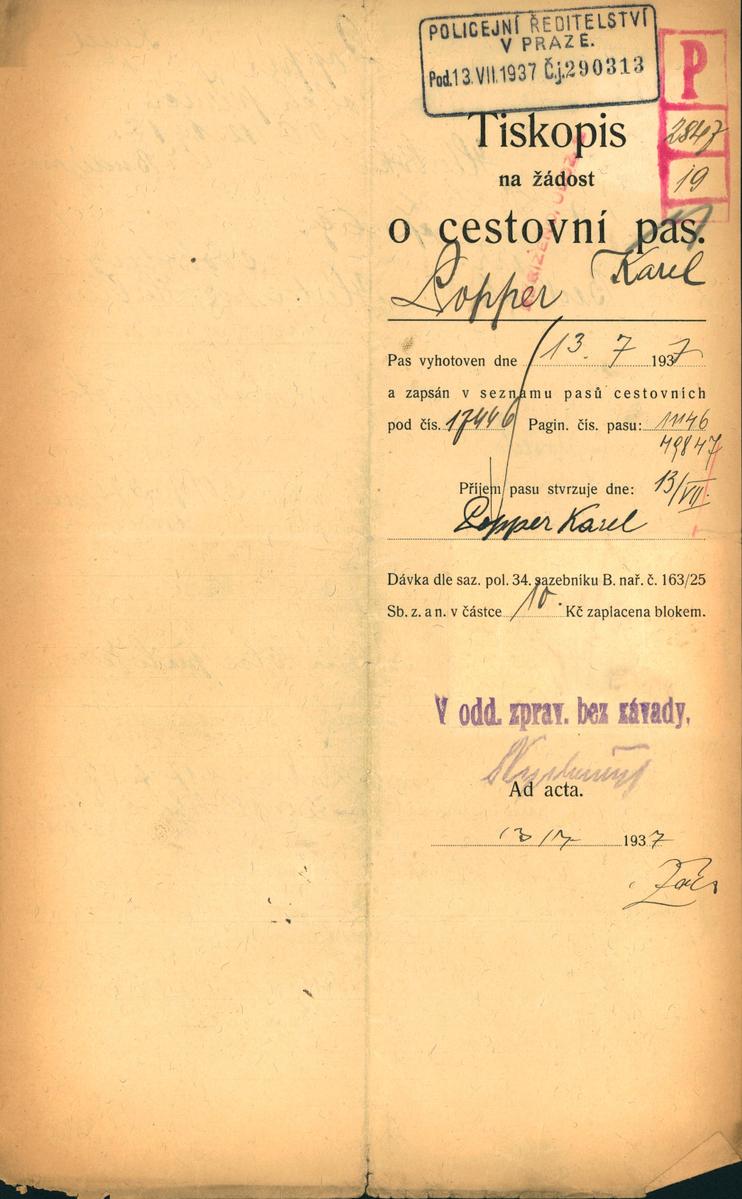 POLICEJNÍ ŘEDITELSTVÍ
V PRAZE.
Pod. 13.VII.1937 Č.j. 290313
P
2847
19
Tiskopis
na žádost
o cestovní pas.
Popper Karel
Pas vyhotoven dne 13. 7 1937
a zapsán v seznamu pasů cestovních
pod čís. 17446 Pagin. čís. pasu: 1146
49847
Příjem pasu stvrzuje dne: 13/VII.
Popper Karel
Dávka dle saz. pol. 34. sazebniku B. nař. č. 163/25
Sb. z. a n. v částce 10. Kč zaplacena blokem.
V odd. zprav. bez závady.
Ad acta.
13/7 1937